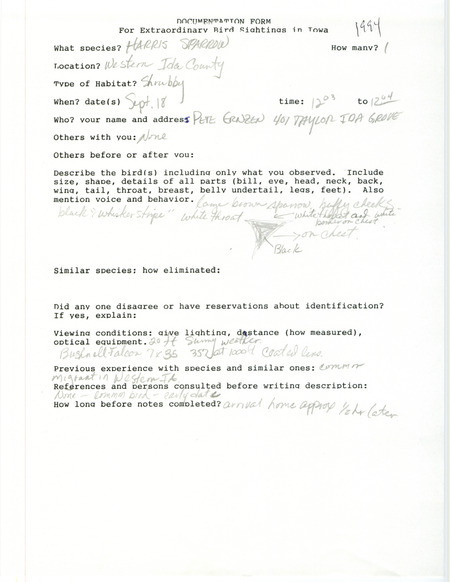 DOCUMENTATION FORM
For Extraordinary Bird Sightings in Iowa 1994
What species? HARRIS SPARROW How many? 1
Location? Western Ida County
Type of Habitat? Shrubby
When? date(s) Sept. 18 time: 1203 to 1204
Who? your name and address PETE ERNZEN 401 TAYLOR IDA GROVE
Others with you: None
Others before or after you:
Describe the bird(s) including only what you observed. Include
size, shape, details of all parts (bill, eye, head, neck, back,
wing, tail, throat, breast, belly undertail, legs, feet). Also
mention voice and behavior. Large brown sparrow, buffy cheeks
black "whisker stripe" white throat white throat and white
on chest
on chest
Black
Similar species: how eliminated:
Did any one disagree or have reservations about identification?
If yes, explain:
Viewing conditions: give lighting, distance (how measured),
optical equipment. 20 ft Sunny weather
Bushnell Falcon 7x35 357 ft at 1000 yd Coated lens
Previous experience with species and similar ones: common
migrant in Western IA
References and persons consulted before writing description:
None - common bird - early date
How long before notes completed? arrival home approx 1/2 hr later